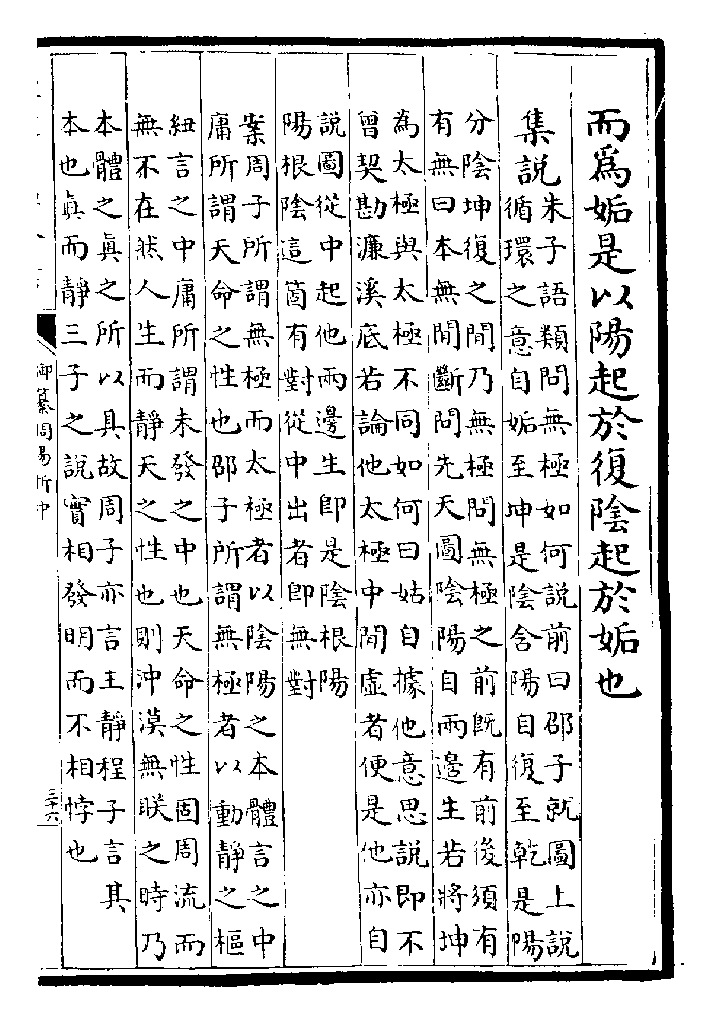 而爲姤是以陽起於復陰起於姤也
集說
朱子語類問無極如何說前曰邵子就圖上說
循環之意自姤至坤是陰含陽自復至乾是陽
分陰坤復之間乃無極問無極之前既有前後須有
有無曰本無間斷問先天圖陰陽自兩邊生若將坤
為太極與太極不同如何曰姑自據他意思說即不
曾契勘濂溪底若論他太極中間虛者便是他亦自
說圖從中起他兩邊生卽是陰根陽
陽根陰這箇有對從中出者卽無對
案周子所謂無極而太極者以陰陽之本體言之中
庸所謂天命之性也邵子所謂無極者以動靜之樞
紐言之中庸所謂未發之中也天命之性固周流而
無不在然人生而靜天之性也則沖漠無眹之時乃
本體之眞之所以具故周子亦言主靜程子言其
本也眞而靜三子之說實相發明而不相悖也
御纂周易折中
三十六